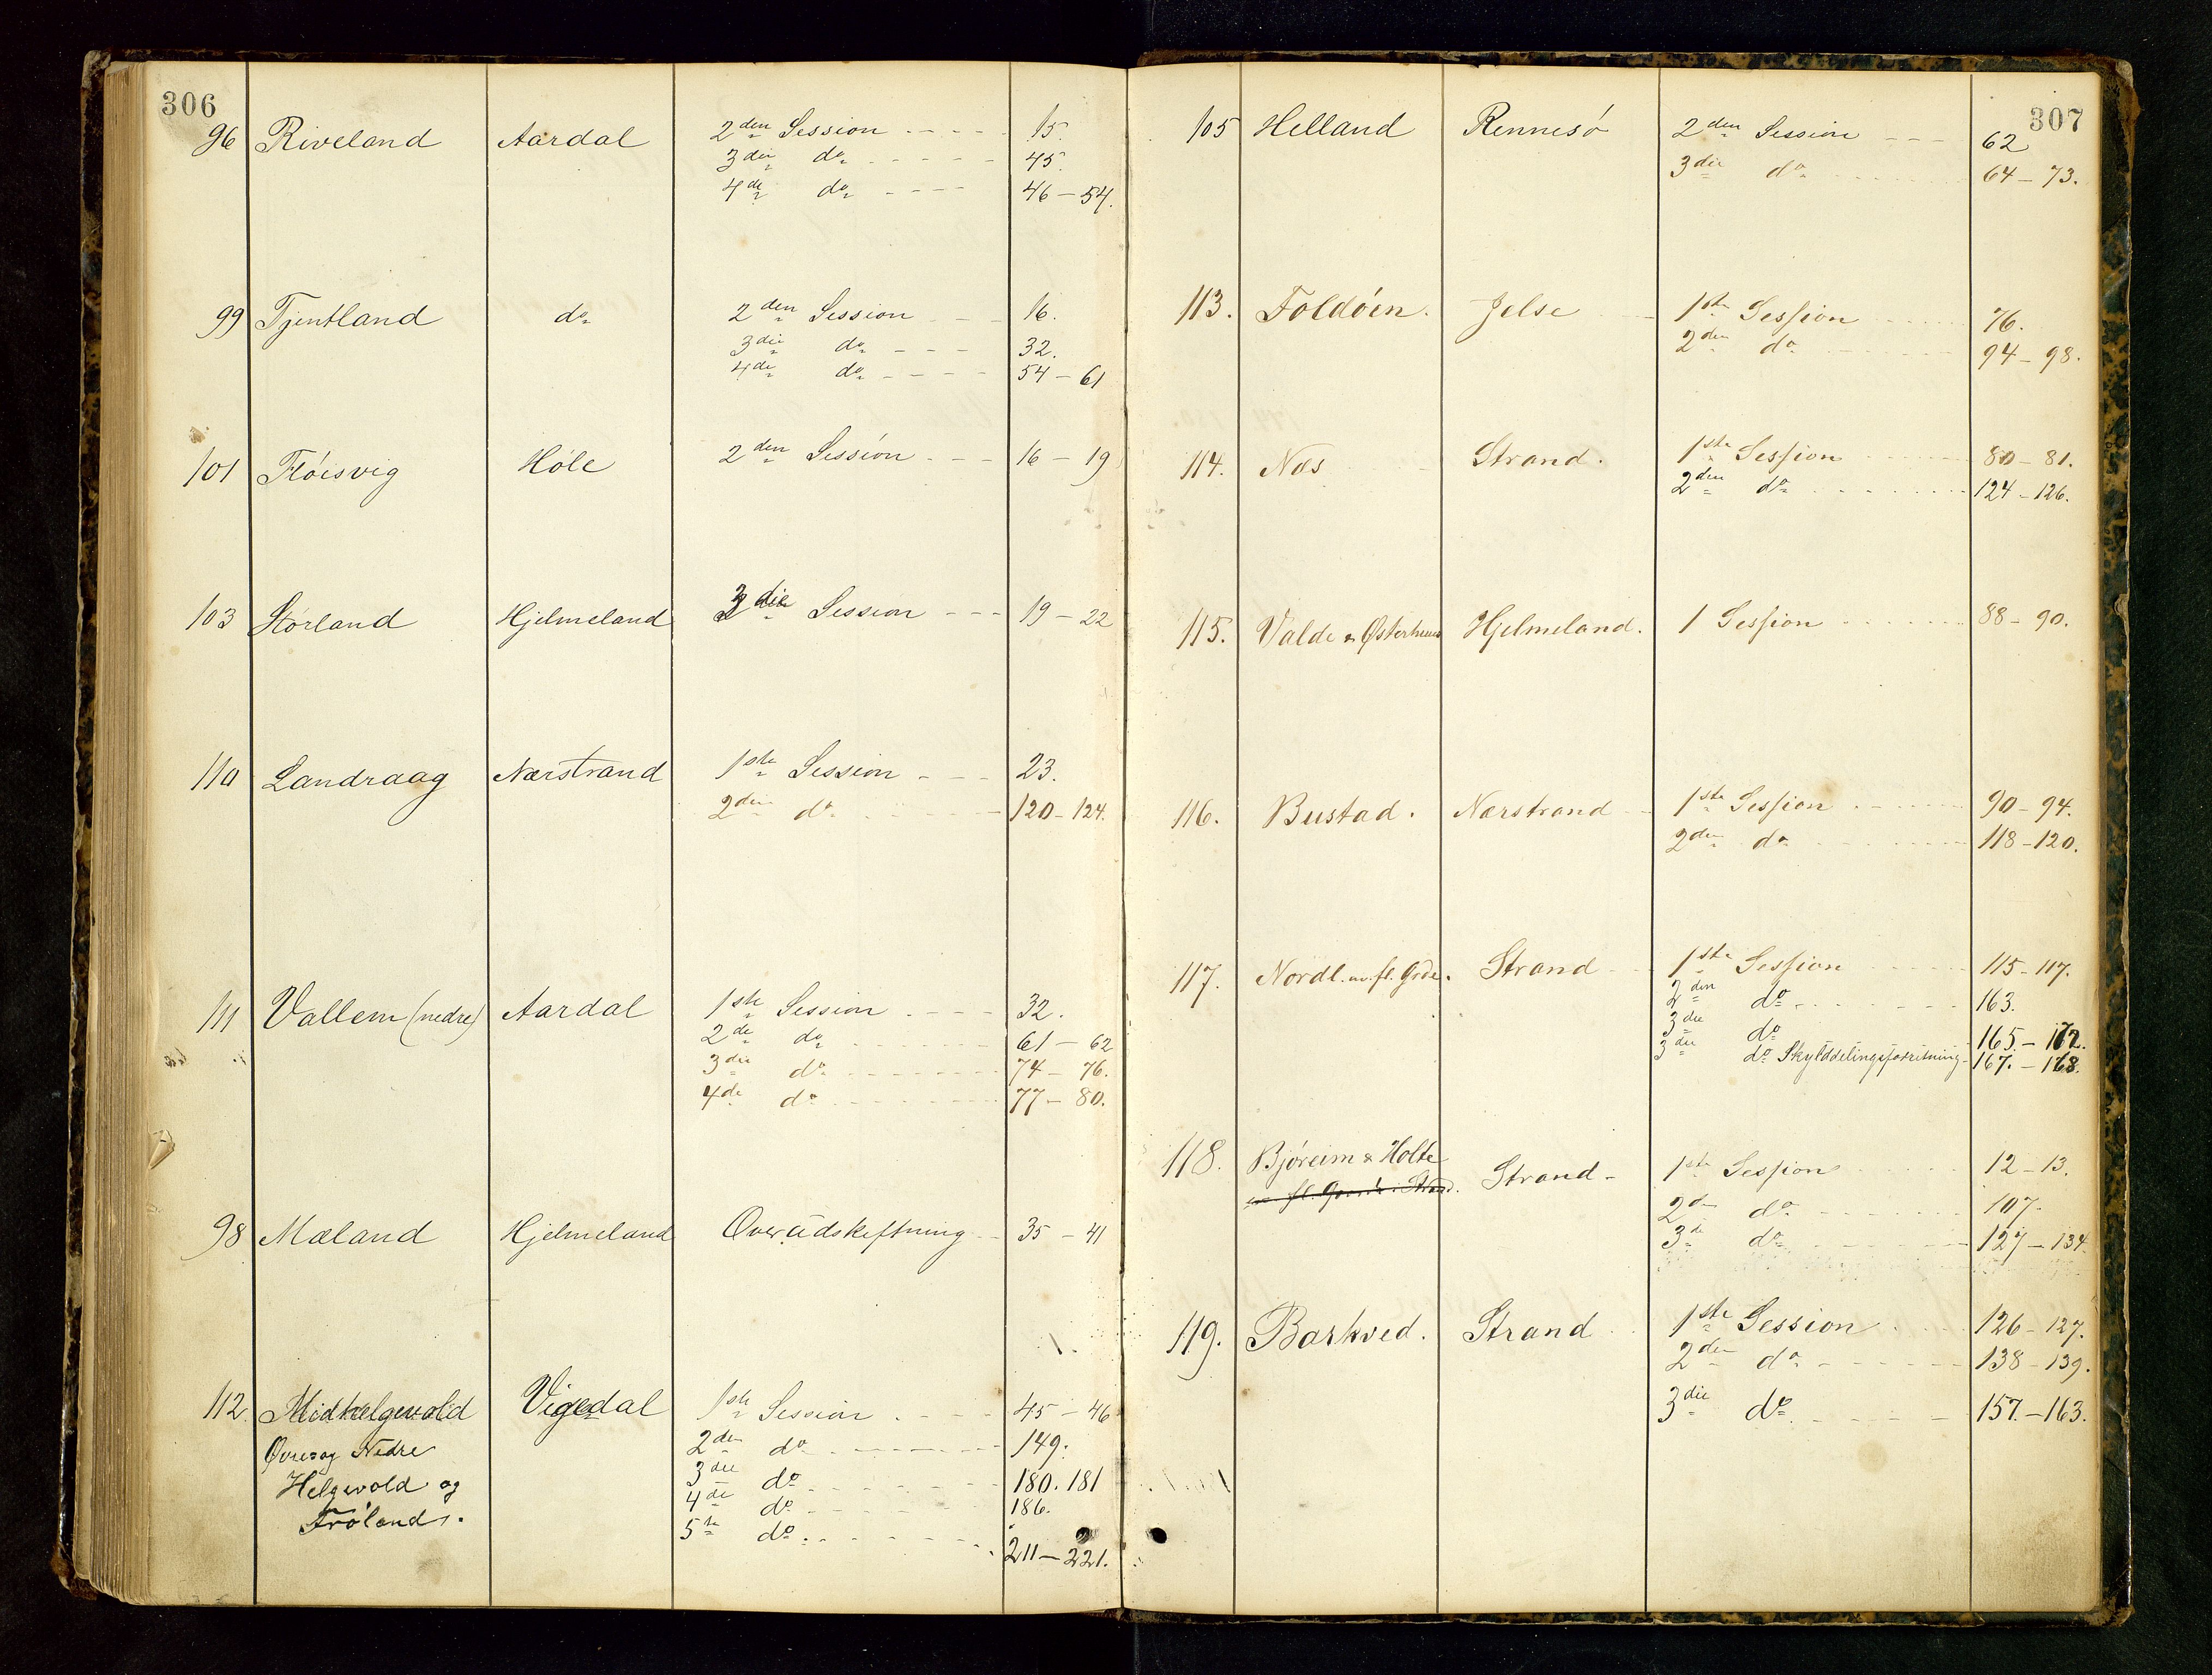 306
96 Riveland Aardal 2den Session - - - - 15.
3die do - - - - - 45.
4de do - - - - 46 - 54.
99 Tjentland do 2den Session - - 16.
3die do - - - 32.
4de do - - - - 54 - 61
101 Flöisvig Höle 2den Session - - - 16 - 19
103 Störland Hjelmeland 3die Session - - - 19 - 22
110 Landraag Nærstrand 1ste Session - - - 23.
2den do - - - - 120 - 124.
111 Vallem (nedre) Aardal 1ste Session - - - - 32.
2de do - - - - 61 - 62
3die do - - - - 74 - 76.
4de do - - - - 77 - 80.
98 Mæland Hjelmeland Overudskiftning - - 35 - 41
112. Midthelgevold Vigedal 1ste Session - - - - 45 - 46
Øvre og Nedre 2den do - - - - 149.
Helgevold og 3die do - - - - 180. 181
4de do - - - - 186.
Fröland. 5te do - - - - 211 - 221.
307
105 Helland Rennesö 2den Session - - - 62
3die do - - - - 64 - 73.
113. Foldöen. Jelse 1ste Session - - - - 76.
2den do - - - - 94 - 98.
114. Næs Strand. 1ste Session - - - - 80 - 81.
2den do - - - - 124 - 126.
115. Valde & Østerhus Hjelmeland. 1 Session - - - - 88 - 90.
116. Bustad. Nærstrand 1ste Session - - - - 90 - 94.
2den do - - - - 118 - 120.
117. Nordl. m. fl. Grde. Strand 1ste Session - - - - 115 - 117.
2den do - - - - 163.
3die do 165. - 172.
3die do Skylddelingsforretning - 167. - 168.
118. Björeim & Holte Strand - 1ste Session - - - - 12 - 13.
2den do - - - - 107.
3die do - - - - 127 - 134.
119. Barkved. Strand 1ste Session - - - - 126 - 127.
2den do - - - - 138 - 139.
3die do - - - - 157. - 163.